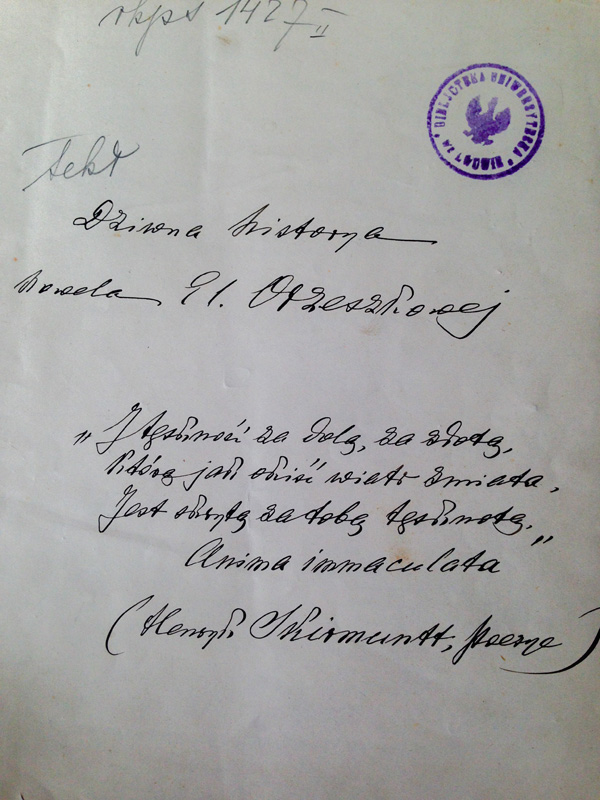 rkps 1427 II
BIBLJOTEKA UNIWERSYTECKA WE LWOWIE
Tekt
Dziwna historya
nowela El. Orzeszkowej
„I tęskność za dolą, za złotą,
Którą jak liść wiatr zmiata,
Jest skrytą za tobą tęsknotą,"
Anima immaculata
(Henryk Skirmuntt, Poezye)